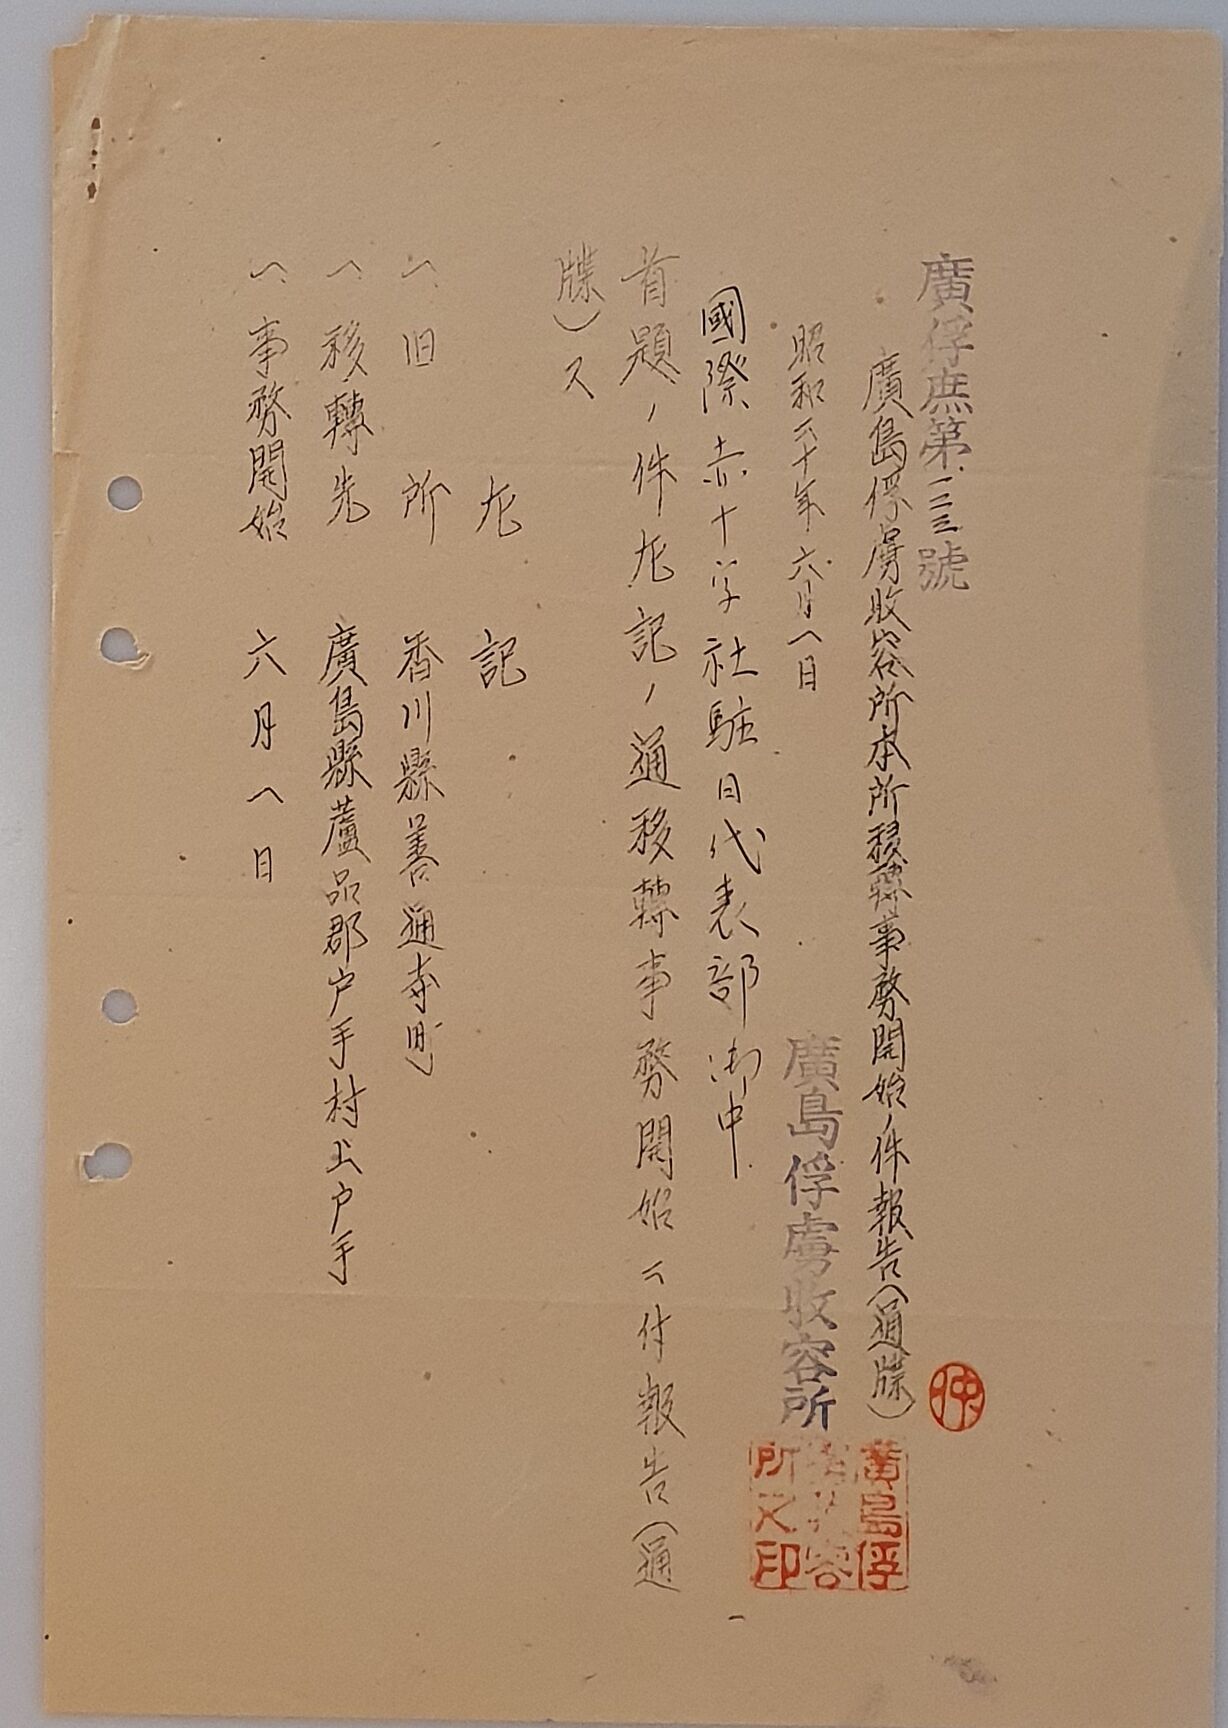 廣俘庶第一二三號
廣島俘虜收容所本所移轉事務開始ノ件報告(通牒)
昭和二十年六月一日
廣島俘虜收容所
廣島俘
虜收容
所之印
國際赤十字社駐日代表部御中
首題ノ件左記ノ通移轉事務開始ニ付報告(通
牒)ス
左記
一、旧所 香川縣善通寺町
一、移轉先 廣島縣蘆品郡戸手村上戸手
一、事務開始 六月一日